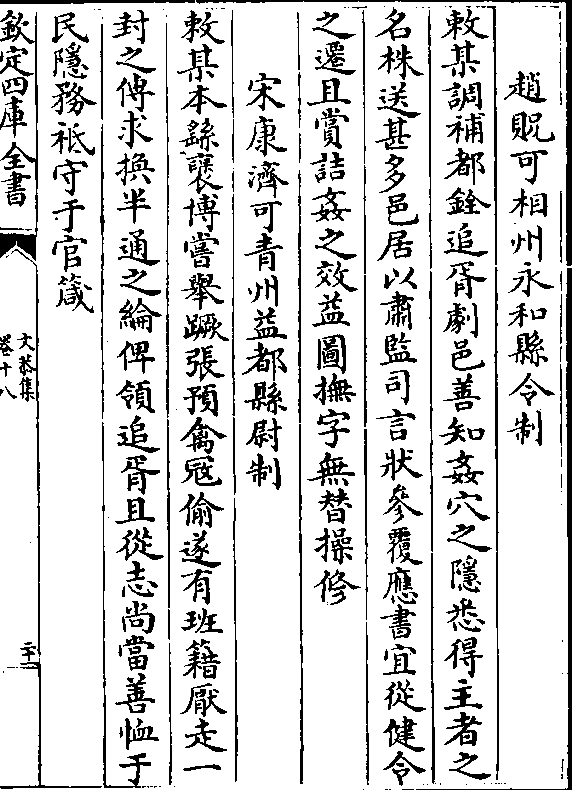 趙贶可相州永和縣令制
敕某調補都銓追胥劇邑善知姦穴之隱悉得主者之
名株送甚多邑居以肅監司言狀參覆應書宜從健令
之遷且賞詰姦之效益圖撫字無替操修
宋康濟可青州益都縣尉制
敕某本繇裒博嘗舉蹶張預禽冦偷遂有班籍厭走一
封之傅求換半通之綸俾領追胥且從志尚當善恤于
民隱務祇守于官箴
欽定四庫全書
文恭集
卷十八
二十一